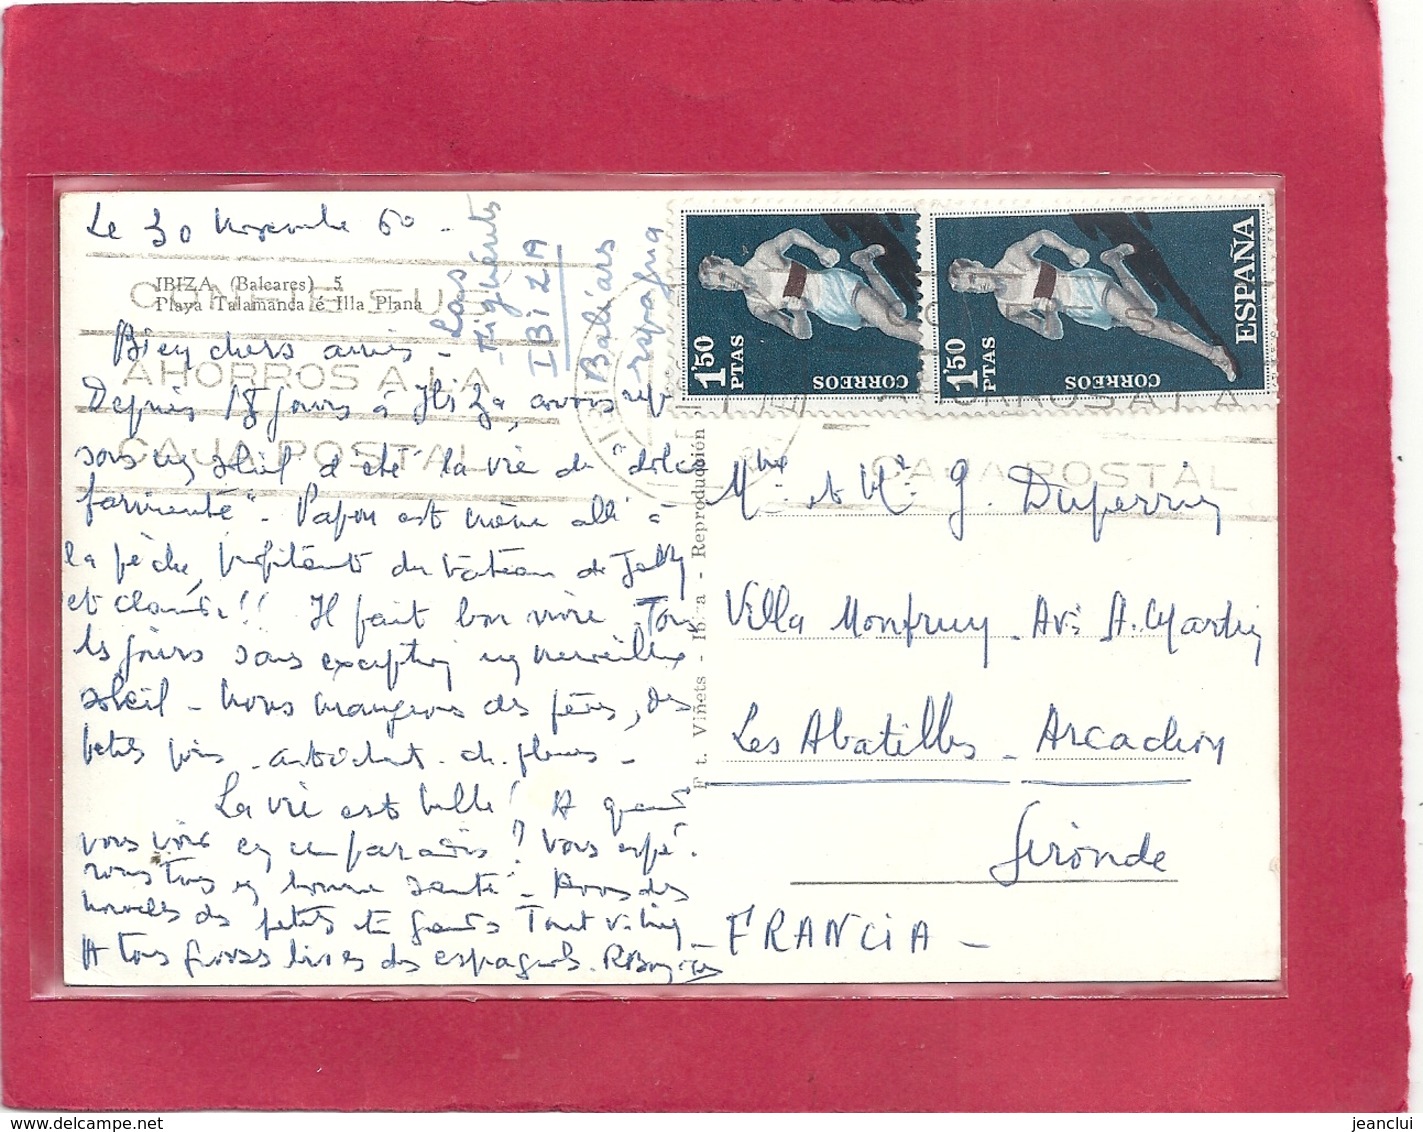 Le 30 Novembre 60 -
IBIZA (Baleares) 5
Playa Talamanca é Illa Plana
Las
Figuérets
IBIZA
Baléars
España
CONFIE SUS
AHORROS A LA
CAJA POSTAL
1'50
PTAS
CORREOS
1'50
PTAS
CORREOS
ESPAÑA
AHORROS A LA
CAJA POSTAL
Bien chers amis -
Depuis 18 jours à Ibiza, avons
sous un soleil d'été la vie du "dolce
farniente". Papou est même allé à
la pêche, profitant du bateau de
et Claude!! Il fait bon vivre. Tous
les jours sans exception un merveilleux
soleil - Nous mangeons des fèves, des
petits pois - artichauts - des fleurs -
La vie est belle! A quand
vous voir en ce paradis? Vous espé-
rons tous en bonne santé - Avons des
nouvelles des petits et grands Tout va bien
A tous grosses bises des espagnols.
F t. Viñets - Ibiza - Reproducción
Mme et Mr G. Duperruy
Villa Monfruy - Ave A. Martin
Les Abatilles - Arcachon
Gironde
FRANCIA -
www.delcampe.net
jeanclui